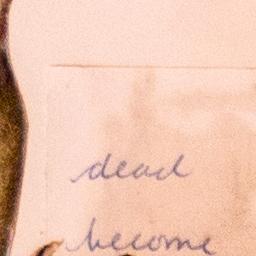 dead
become